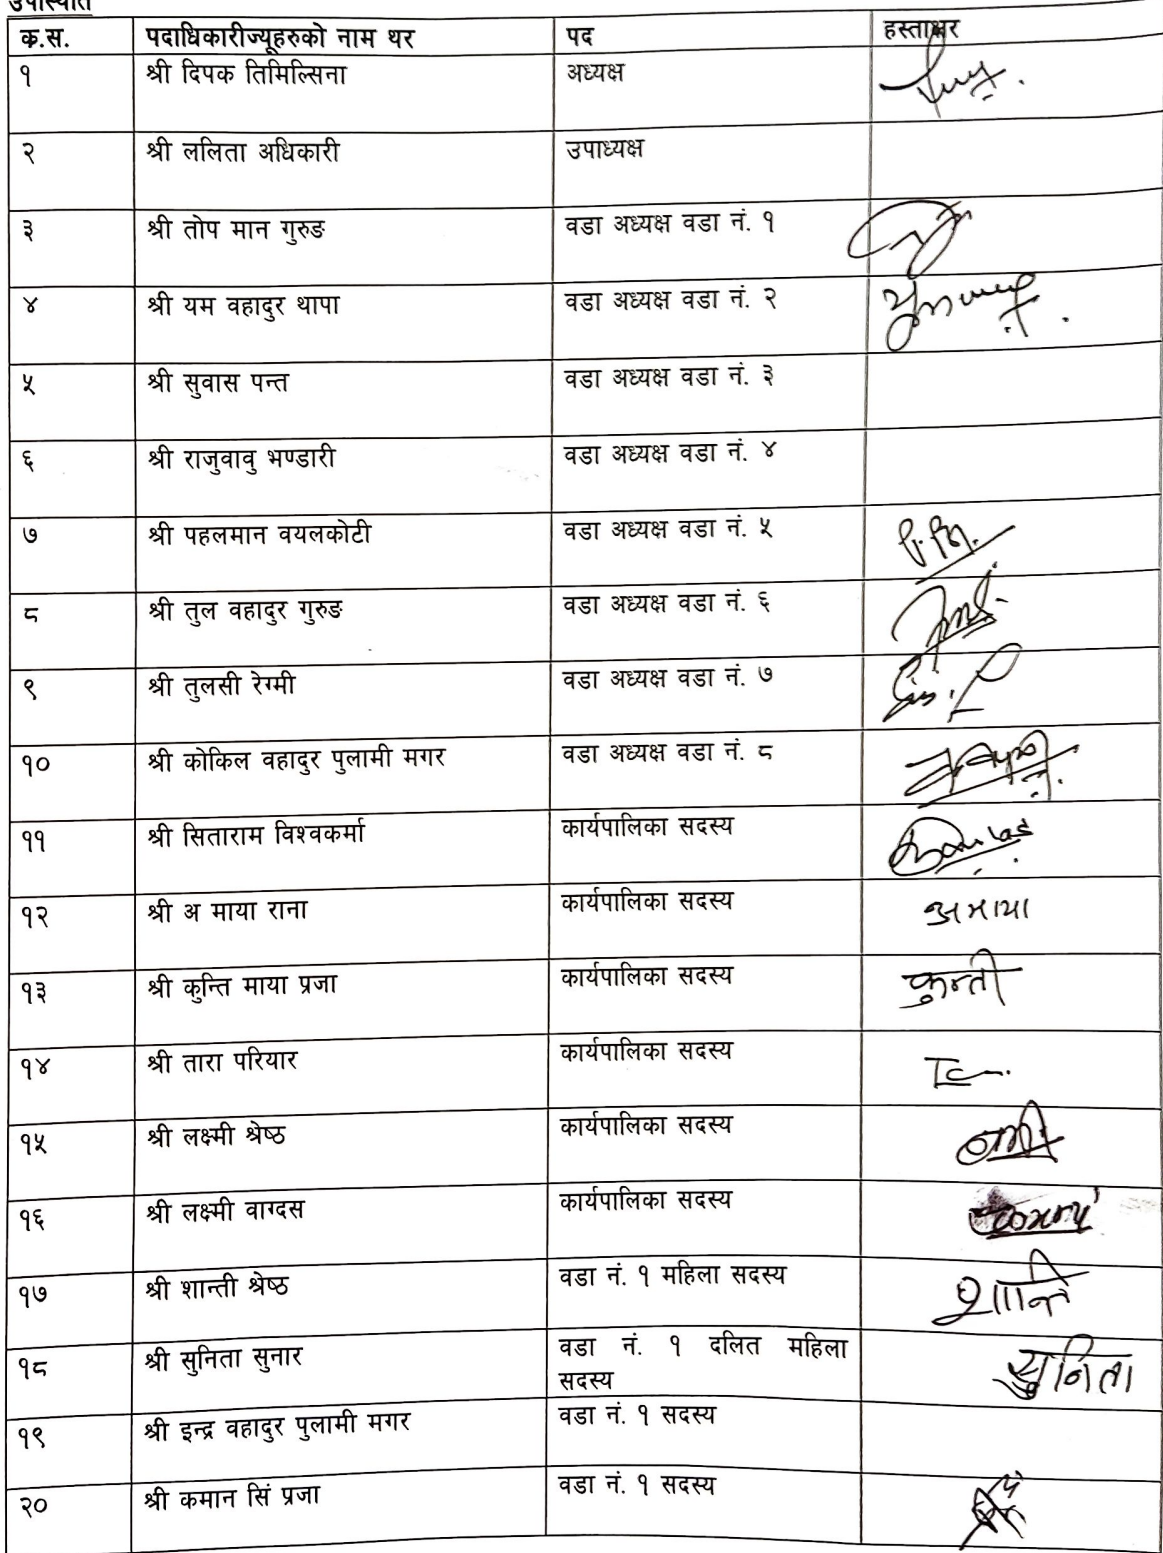 उपस्थिति
क.स. पदाधिकारीज्यूहरुको नाम थर पद हस्ताक्षर
१ श्री दिपक तिमिल्सिना अध्यक्ष
२ श्री ललिता अधिकारी उपाध्यक्ष
३ श्री तोप मान गुरुङ वडा अध्यक्ष वडा नं. १
४ श्री यम वहादुर थापा वडा अध्यक्ष वडा नं. २
५ श्री सुवास पन्त वडा अध्यक्ष वडा नं. ३
६ श्री राजुवावु भण्डारी वडा अध्यक्ष वडा नं. ४
७ श्री पहलमान वयलकोटी वडा अध्यक्ष वडा नं. ५
८ श्री तुल वहादुर गुरुङ वडा अध्यक्ष वडा नं. ६
९ श्री तुलसी रेग्मी वडा अध्यक्ष वडा नं. ७
१० श्री कोकिल वहादुर पुलामी मगर वडा अध्यक्ष वडा नं. ८
११ श्री सिताराम विश्वकर्मा कार्यपालिका सदस्य
१२ श्री अ माया राना कार्यपालिका सदस्य अमाया
१३ श्री कुन्ति माया प्रजा कार्यपालिका सदस्य कुन्ती
१४ श्री तारा परियार कार्यपालिका सदस्य
१५ श्री लक्ष्मी श्रेष्ठ कार्यपालिका सदस्य
१६ श्री लक्ष्मी वाग्दस कार्यपालिका सदस्य
१७ श्री शान्ती श्रेष्ठ वडा नं. १ महिला सदस्य शान्ति
१८ श्री सुनिता सुनार वडा नं. १ दलित महिला सुनिता
सदस्य
१९ श्री इन्द्र वहादुर पुलामी मगर वडा नं. १ सदस्य
२० श्री कमान सिं प्रजा वडा नं. १ सदस्य